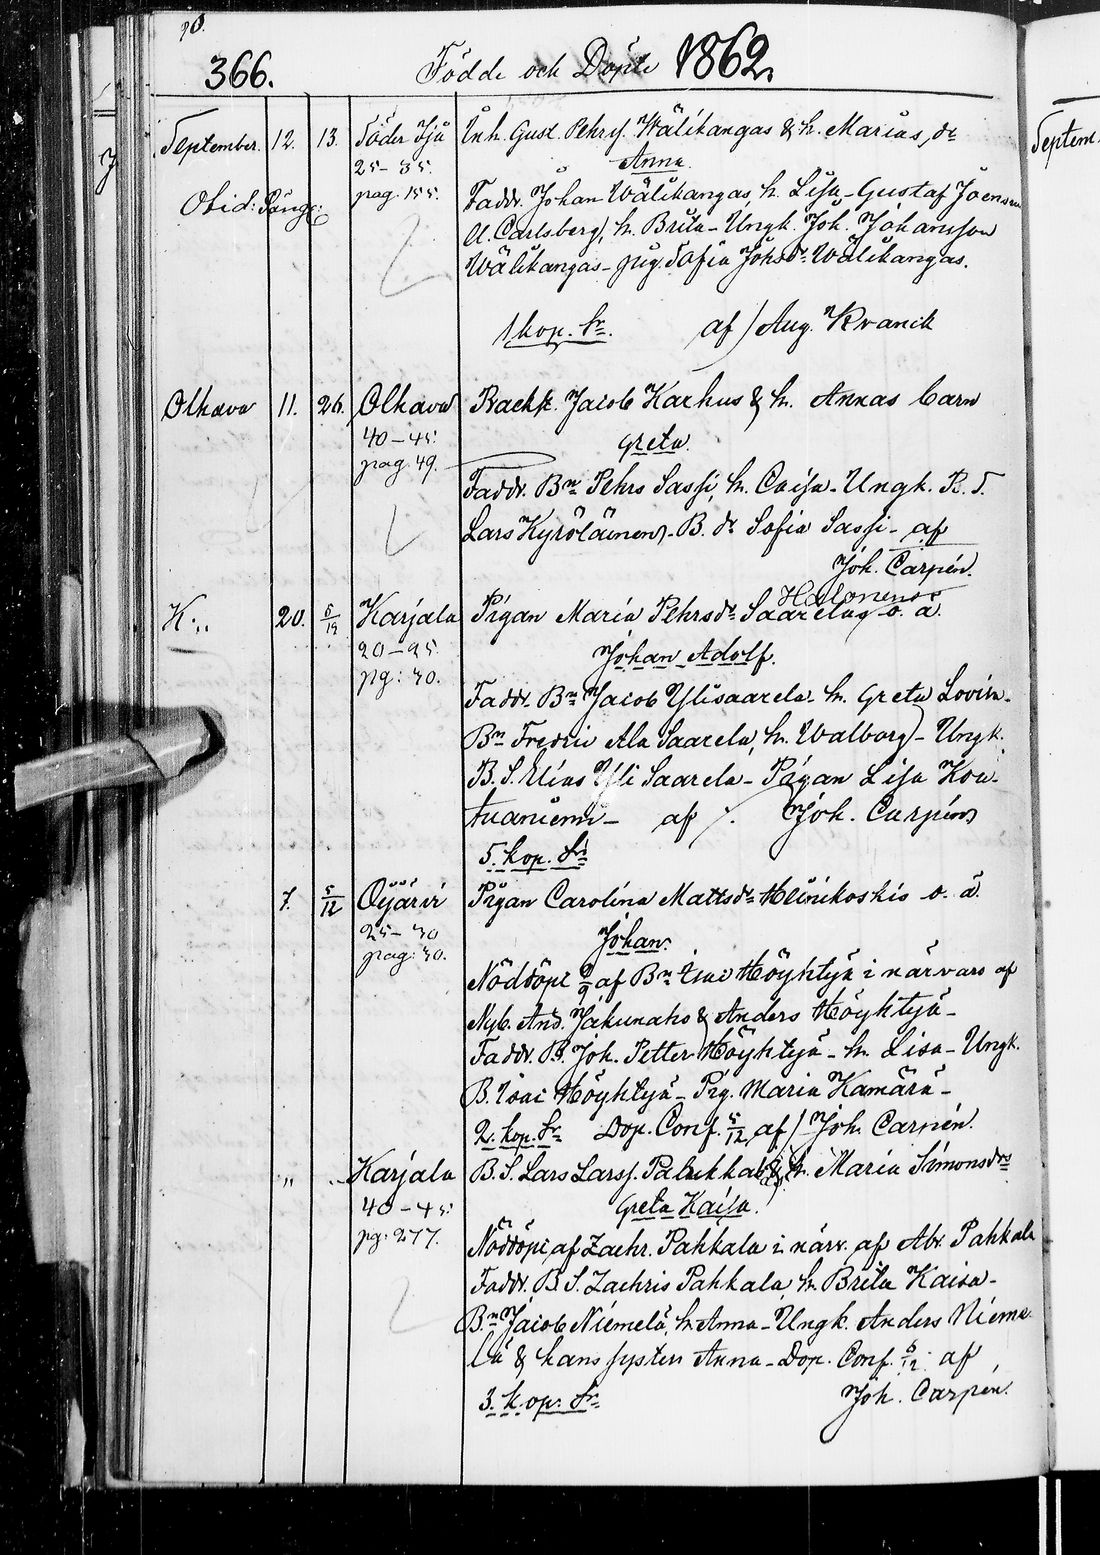 366. Födde och Döpte 1862.
September. 12. 13. Söder Ijå Inh. Gust. Pehrss. Wälikangas & h. Marias, dr
25–35. Anna
pag. 155. Faddr. Johan Wälikangas, h. Lisa – Gustaf Joensuu
Obid:
Carlsberg, h. Brita – Ungk. Joh. Johansson
Wälikangas – pig. Sofia Johsdr Wälikangas.
1 kop. Sr. af / Aug. Kranck
Olhava 11. 26. Olhava Backst. Jacob Karhus & h. Annas barn
40–45. Greta.
pag. 49.
Faddr. Bn Pehrs Sassi, h. Caisa – Ungk. B. S.
Lars Kyröläinen – B. dr Sofia Sassi – af
Joh. Carpén.
Halonens
K. „ 20. 5/12 Karjala Pigan Maria Pehrsdr Saarelas o. ä.
20–25. Johan Adolf.
pg: 30.
Faddr. Bn Jacob Ylisaarela h. Greta Lovisa –
Bn Fredric Ala Saarela, h. Walborg – Ungk.
B. S. Elias Yli Saarela – Pigan Lisa Kou-
tuaniemi – af /. Joh. Carpén
5. kop. Sr
7. 5/12 Oijärvi Pigan Carolina Mattsdr Heinikoskis o. ä.
25–30 Johan.
pag: 30.
Nöddöpt 9/9 af Bn Isac Höyhtyä i närvaro af
Nyb. And. Jakunaho & Anders Höyhtyä –
Faddr. B. Joh. Petter Höyhtyä – h. Lisa – Ungk.
B. Isac Höyhtyä – Pig. Maria Kamärä –
2. kop. Sr Dop. Conf. 5/12 af / Joh. Carpén.
„ Karjala B. S. Lars Larss. Pahkkala & h. Maria Simonsdrs
40–45. Greta Kaisa.
pg: 277.
Nöddöpt af Zachr. Pahkala i närv. af Abr. Pahkala
Faddr. B. S. Zachris Pahkala, h. Brita Kaisa –
Bn Jacob Niemelä, h. Anna – Ungk. Anders Nieme-
lä & hans syster Anna – Dop. Conf. 5/12 af
3. kop: Sr Joh. Carpén.
Septem.